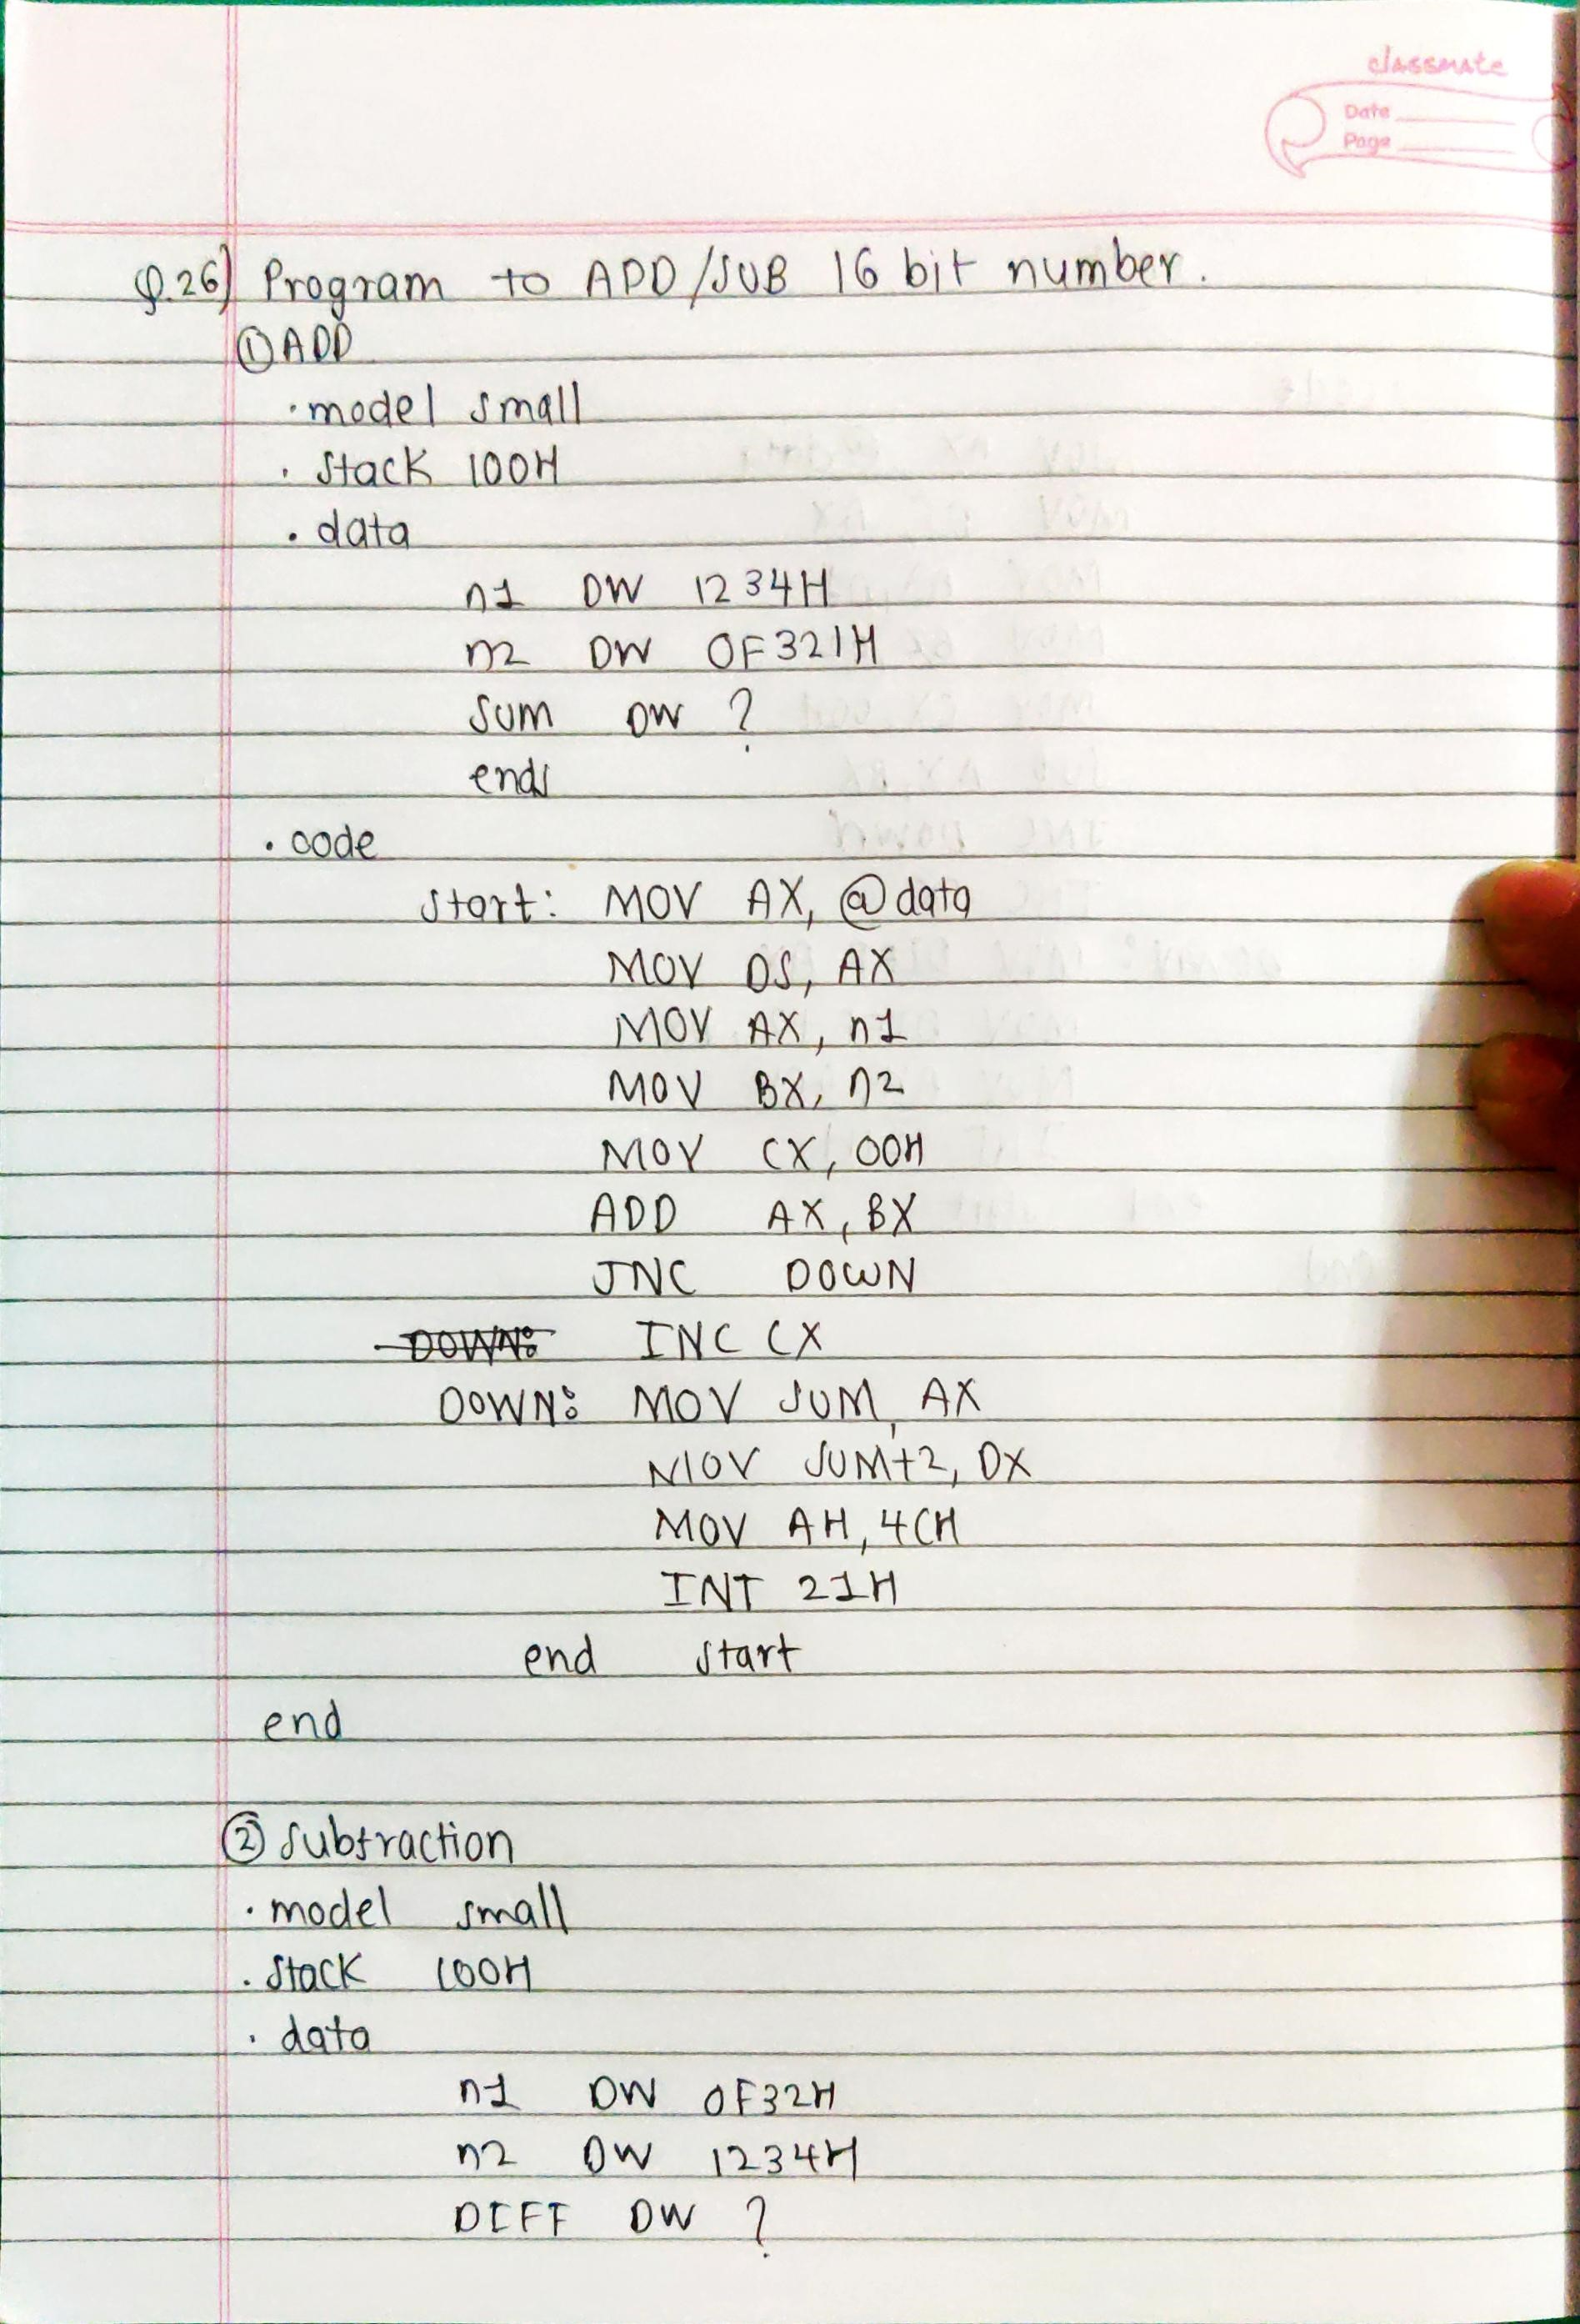 classmate
Date
Page
Q.26) Program to ADD/SUB 16 bit number.
① ADD
.model small
.stack 100H
.data
n1 DW 1234H
n2 DW 0F321H
Sum DW ?
ends
.code
start: MOV AX, @data
MOV DS, AX
MOV AX, n1
MOV BX, n2
MOV CX, 00H
ADD AX, BX
JNC DOWN
DOWN: INC CX
DOWN: MOV SUM, AX
MOV SUM+2, DX
MOV AH, 4CH
INT 21H
end start
end
② Subtraction
.model small
.stack 100H
.data
n1 DW 0F32H
n2 DW 1234H
DIFF DW ?